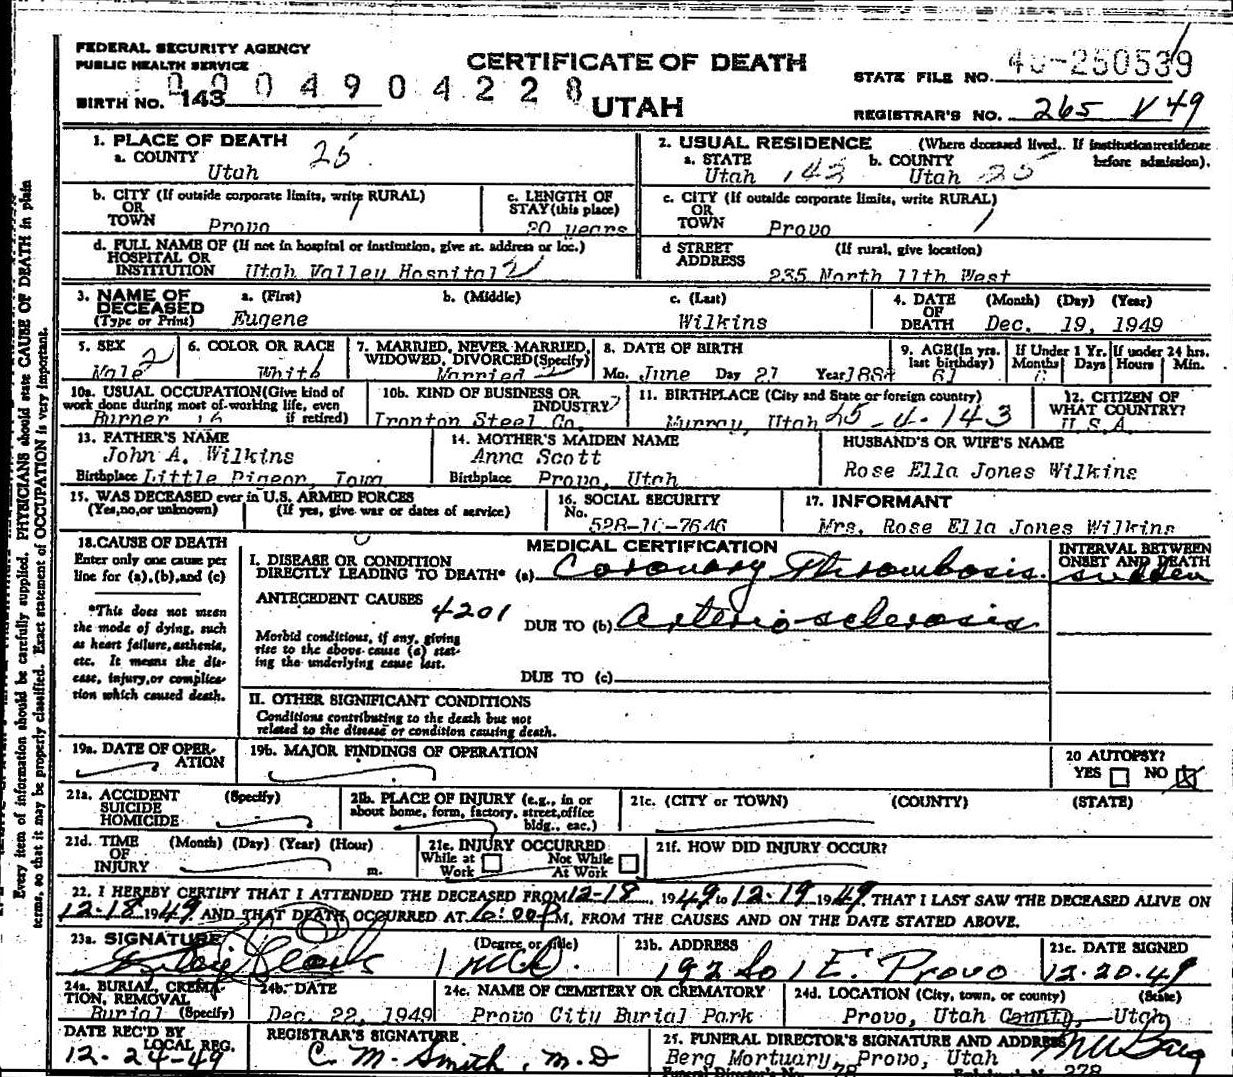 FEDERAL SECURITY AGENCY
PUBLIC HEALTH SERVICE
CERTIFICATE OF DEATH
UTAH
0004904228
BIRTH NO. 143
STATE FILE NO. 49-250539
REGISTRAR'S NO. 265 V 49
1. PLACE OF DEATH
a. COUNTY
Utah 25
2. USUAL RESIDENCE (Where deceased lived. If institution: residence before admission).
a. STATE Utah 143 b. COUNTY Utah 25
b. CITY (If outside corporate limits, write RURAL)
OR
TOWN Provo
c. LENGTH OF
STAY (this place)
20 years
c. CITY (If outside corporate limits, write RURAL)
OR
TOWN Provo
d. FULL NAME OF (If not in hospital or institution, give st. address or loc.)
HOSPITAL OR
INSTITUTION Utah Valley Hospital 2
d STREET (If rural, give location)
ADDRESS
235 North 11th West
3. NAME OF a. (First) b. (Middle) c. (Last)
DECEASED
(Type or Print) Eugene Wilkins
4. DATE (Month) (Day) (Year)
OF
DEATH Dec. 19, 1949
5. SEX
Male 2
6. COLOR OR RACE
White
7. MARRIED, NEVER MARRIED,
WIDOWED, DIVORCED (Specify)
Married
8. DATE OF BIRTH
Mo. June Day 27 Year 1884
9. AGE (In yrs.
last birthday)
If Under 1 Yr.
Months Days
If under 24 hrs.
Hours Min.
10a. USUAL OCCUPATION (Give kind of
work done during most of working life, even
if retired)
Burner
10b. KIND OF BUSINESS OR
INDUSTRY
Ironton Steel Co.
11. BIRTHPLACE (City and State or foreign country)
Murray, Utah 25-4-143
12. CITIZEN OF
WHAT COUNTRY?
U.S.A.
13. FATHER'S NAME
John A. Wilkins
Birthplace Little Pigeon, Iowa
14. MOTHER'S MAIDEN NAME
Anna Scott
Birthplace Provo, Utah
HUSBAND'S OR WIFE'S NAME
Rose Ella Jones Wilkins
15. WAS DECEASED ever in U.S. ARMED FORCES
(Yes, no, or unknown) (If yes, give war or dates of service)
16. SOCIAL SECURITY
No.
528-10-7646
17. INFORMANT
Mrs. Rose Ella Jones Wilkins
18. CAUSE OF DEATH
Enter only one cause per
line for (a), (b), and (c)
*This does not mean
the mode of dying, such
as heart failure, asthenia,
etc. It means the dis-
ease, injury, or complica-
tion which caused death.
MEDICAL CERTIFICATION
I. DISEASE OR CONDITION
DIRECTLY LEADING TO DEATH* (a) Coronary Thrombosis.
INTERVAL BETWEEN
ONSET AND DEATH
sudden
ANTECEDENT CAUSES 4201
DUE TO (b) Arteriosclerosis
Morbid conditions, if any, giving
rise to the above cause (a) stat-
ing the underlying cause last.
DUE TO (c)
II. OTHER SIGNIFICANT CONDITIONS
Conditions contributing to the death but not
related to the disease or condition causing death.
19a. DATE OF OPER-
ATION
19b. MAJOR FINDINGS OF OPERATION
20 AUTOPSY?
YES NO
21a. ACCIDENT (Specify)
SUICIDE
HOMICIDE
21b. PLACE OF INJURY (e.g., in or
about home, form, factory, street, office
bldg., eac.)
21c. (CITY or TOWN) (COUNTY) (STATE)
21d. TIME (Month) (Day) (Year) (Hour)
OF
INJURY m.
21e. INJURY OCCURRED
While at Work Not While At Work
21f. HOW DID INJURY OCCUR?
22. I HEREBY CERTIFY THAT I ATTENDED THE DECEASED FROM 12-18, 1949 to 12-19 1949 THAT I LAST SAW THE DECEASED ALIVE ON
12-18 1949 AND THAT DEATH OCCURRED AT 6:00 P M, FROM THE CAUSES AND ON THE DATE STATED ABOVE.
23a. SIGNATURE (Degree or title)
23b. ADDRESS
192 So 1 E. Provo
23c. DATE SIGNED
12-20-49
24a. BURIAL, CREMA-
TION, REMOVAL
Burial (Specify)
24b. DATE
Dec. 22, 1949
24c. NAME OF CEMETERY OR CREMATORY
Provo City Burial Park
24d. LOCATION (City, town, or county) (State)
Provo, Utah County, Utah
DATE REC'D BY
LOCAL REG.
12-24-49
REGISTRAR'S SIGNATURE
C. M. Smith, M.D
25. FUNERAL DIRECTOR'S SIGNATURE AND ADDRESS
Berg Mortuary, Provo, Utah
Every item of information should be carefully supplied. PHYSICIANS should state CAUSE OF DEATH in plain
terms, so that it may be properly classified. Exact statement of OCCUPATION is very important.